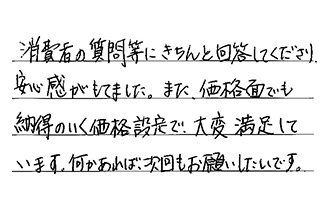 消費者の質問等にきちんと回答してくださり、
安心感がもてました。また、価格面でも
納得のいく価格設定で、大変満足して
います。何かあれば、次回もお願いしたいです。